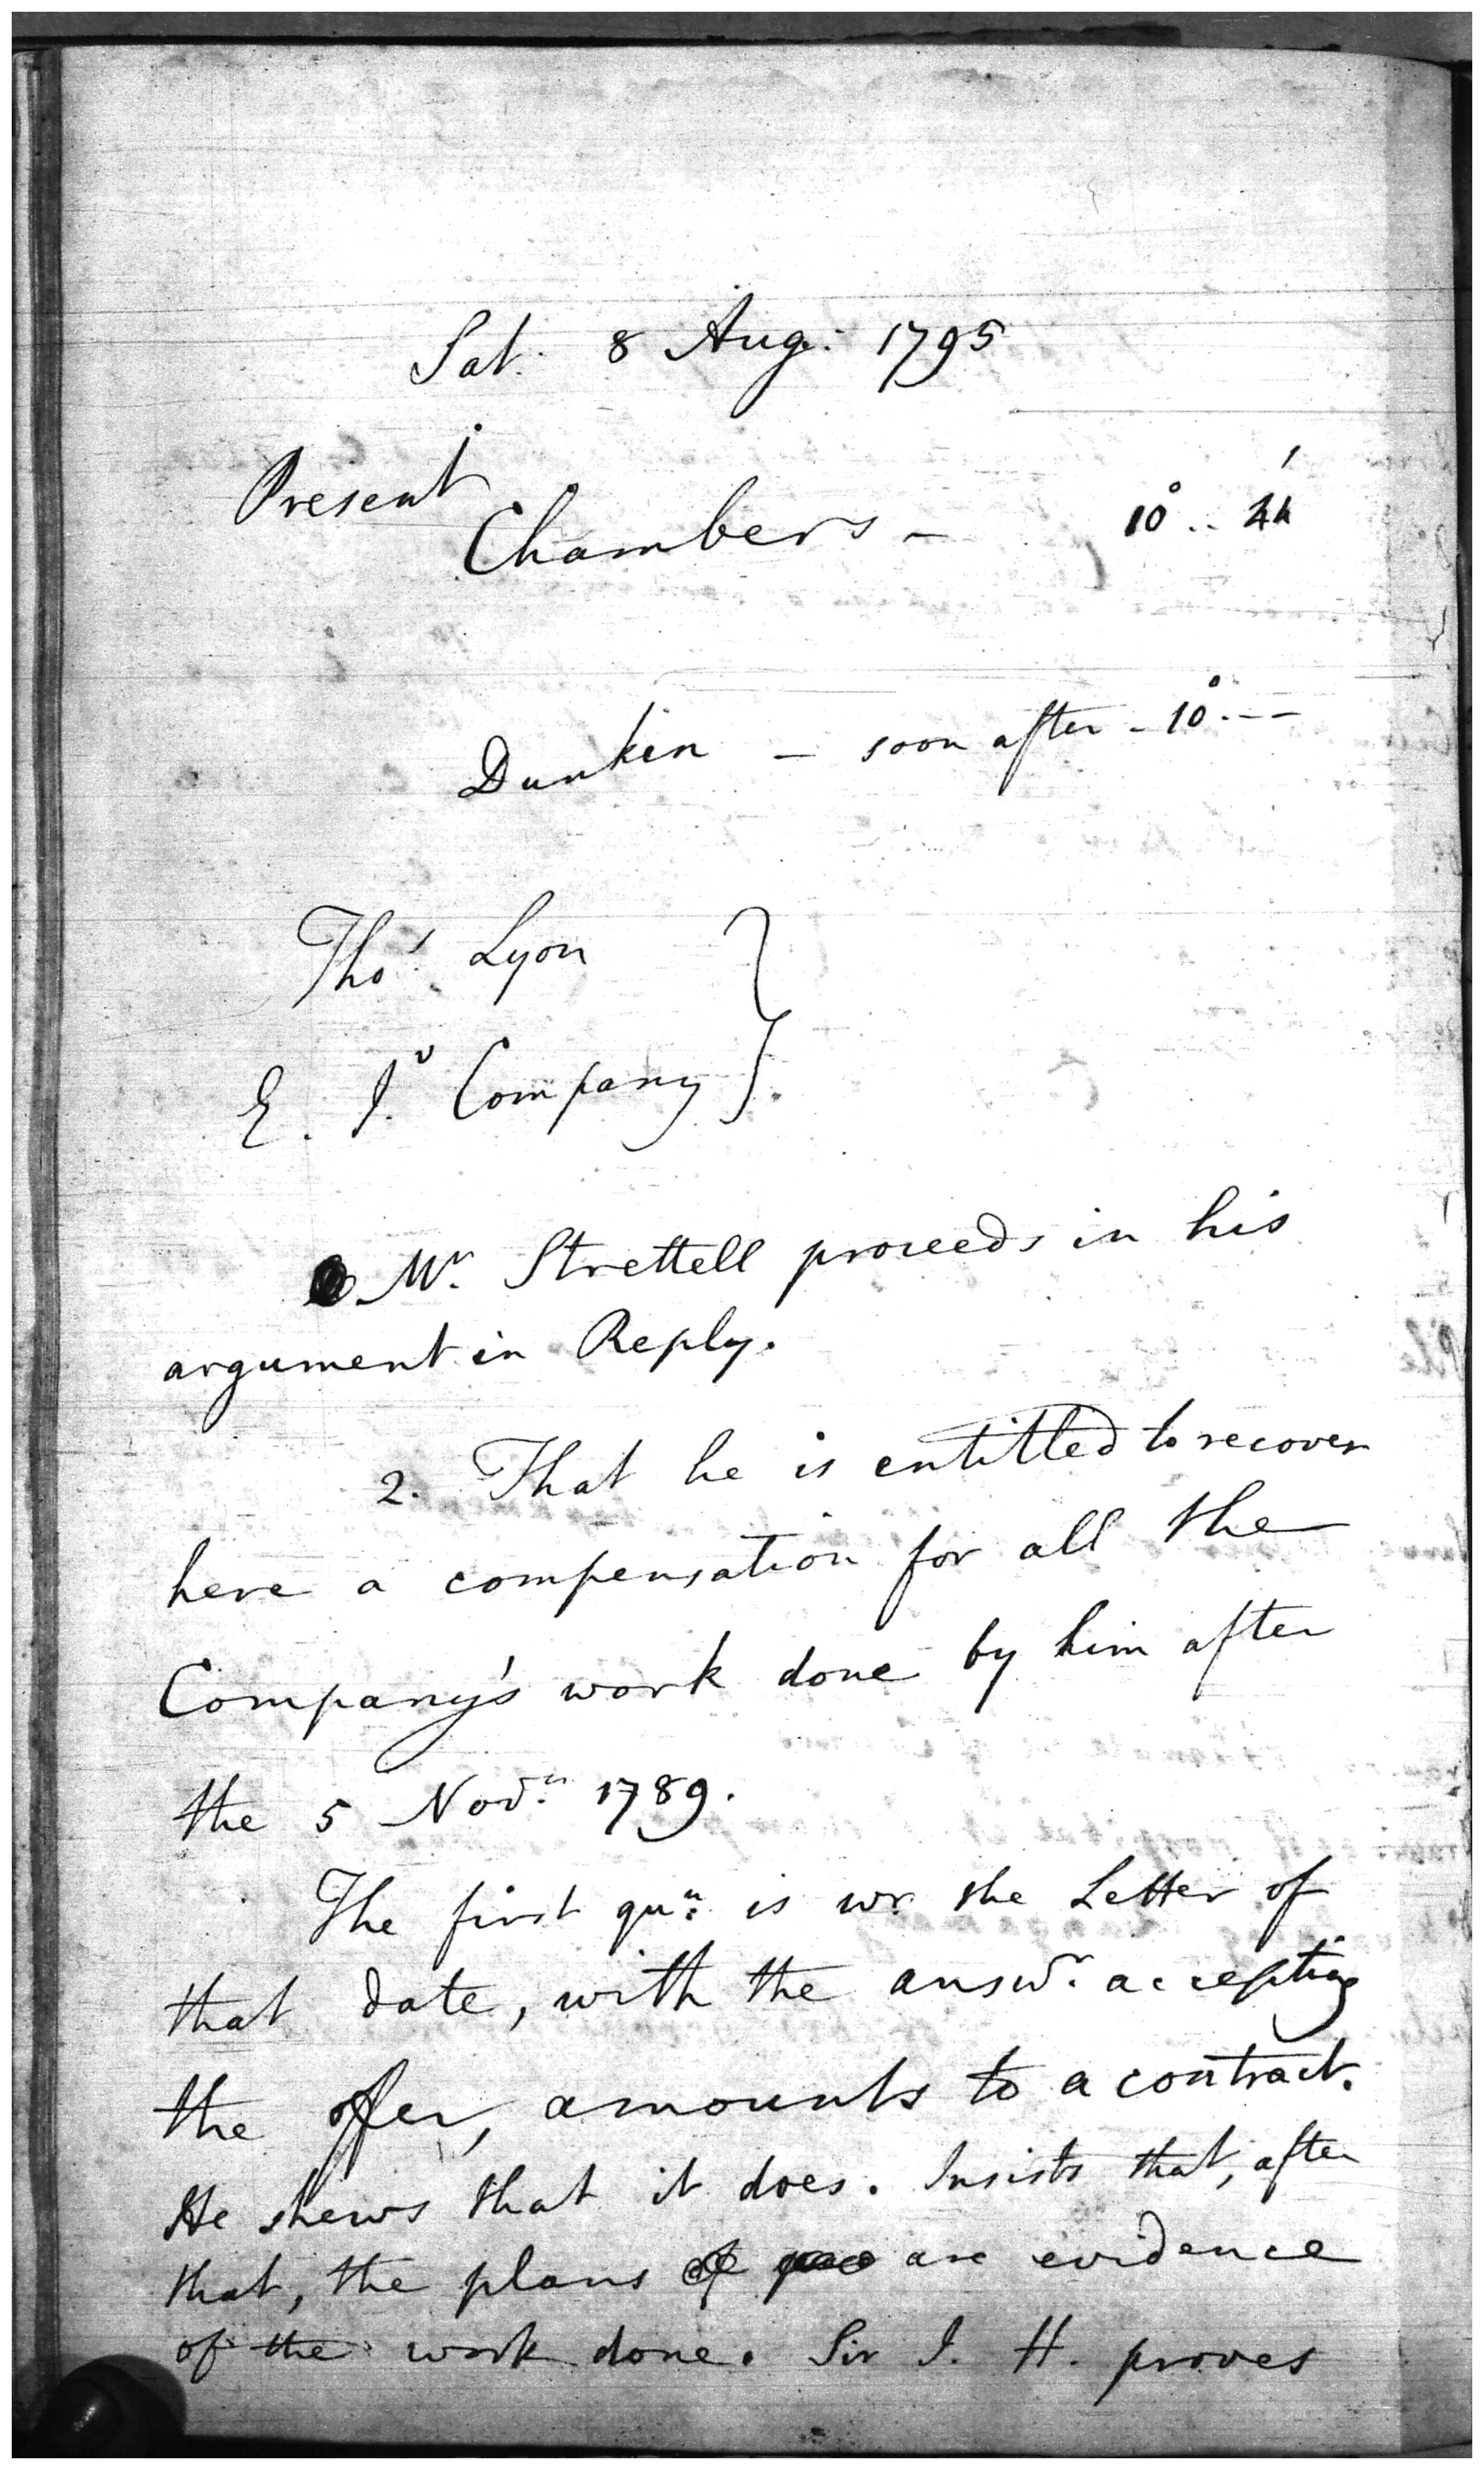 Sat. 8 Aug: 1795
Present
Chambers – 10°.. 44'
Dunkin – soon after – 10°.--
Thos. Lyon
v
E. I. Company
Mr. Strettell proceeds in his
argument in Reply.
2. That he is entitled to recover
here a compensation for all the
Company's work done by him after
the 5 Novr. 1789.
The first qun: is wr. the Letter of
that date, with the answr. accepting
the offer, amounts to a contract.
He shews that it does. Insists that, after
that, the plans are evidence
of the work done. Sir J. H. proves